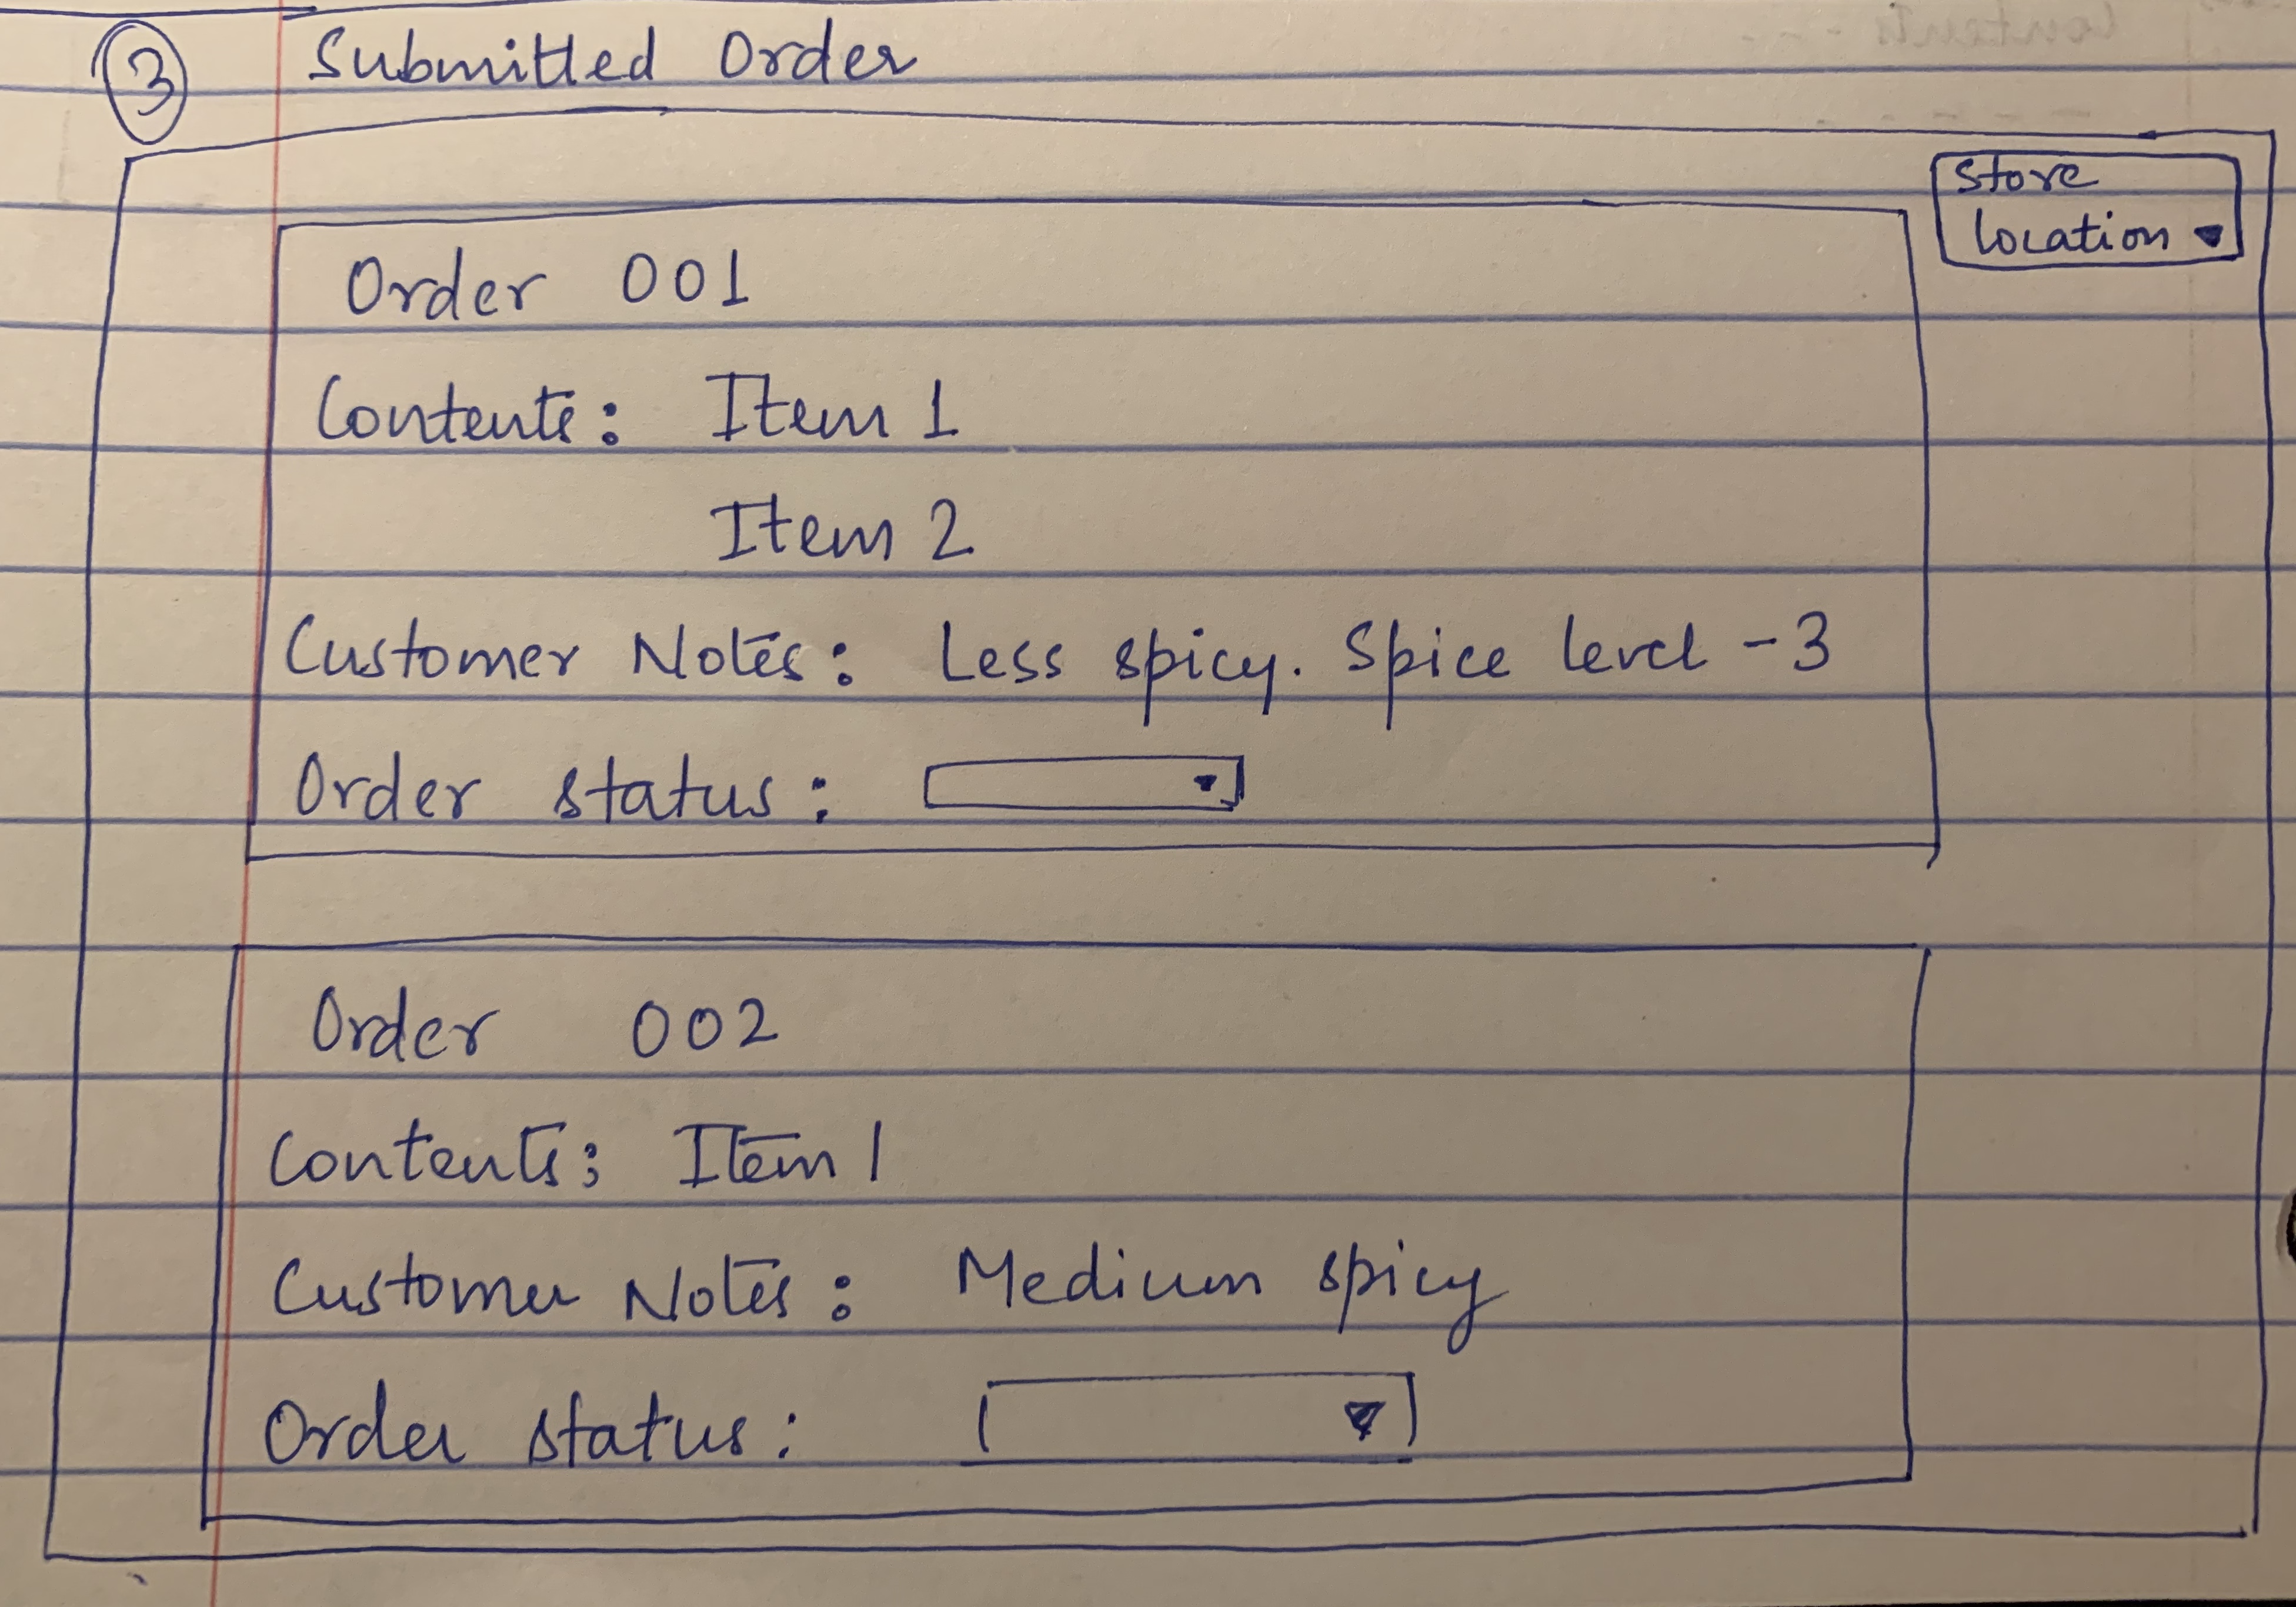 3 Submitted Order
Store
location
Order 001
Contents: Item 1
Item 2
Customer Notes: Less spicy. Spice level -3
Order status:
Order 002
Contents: Item 1
Customer Notes: Medium spicy
Order status: